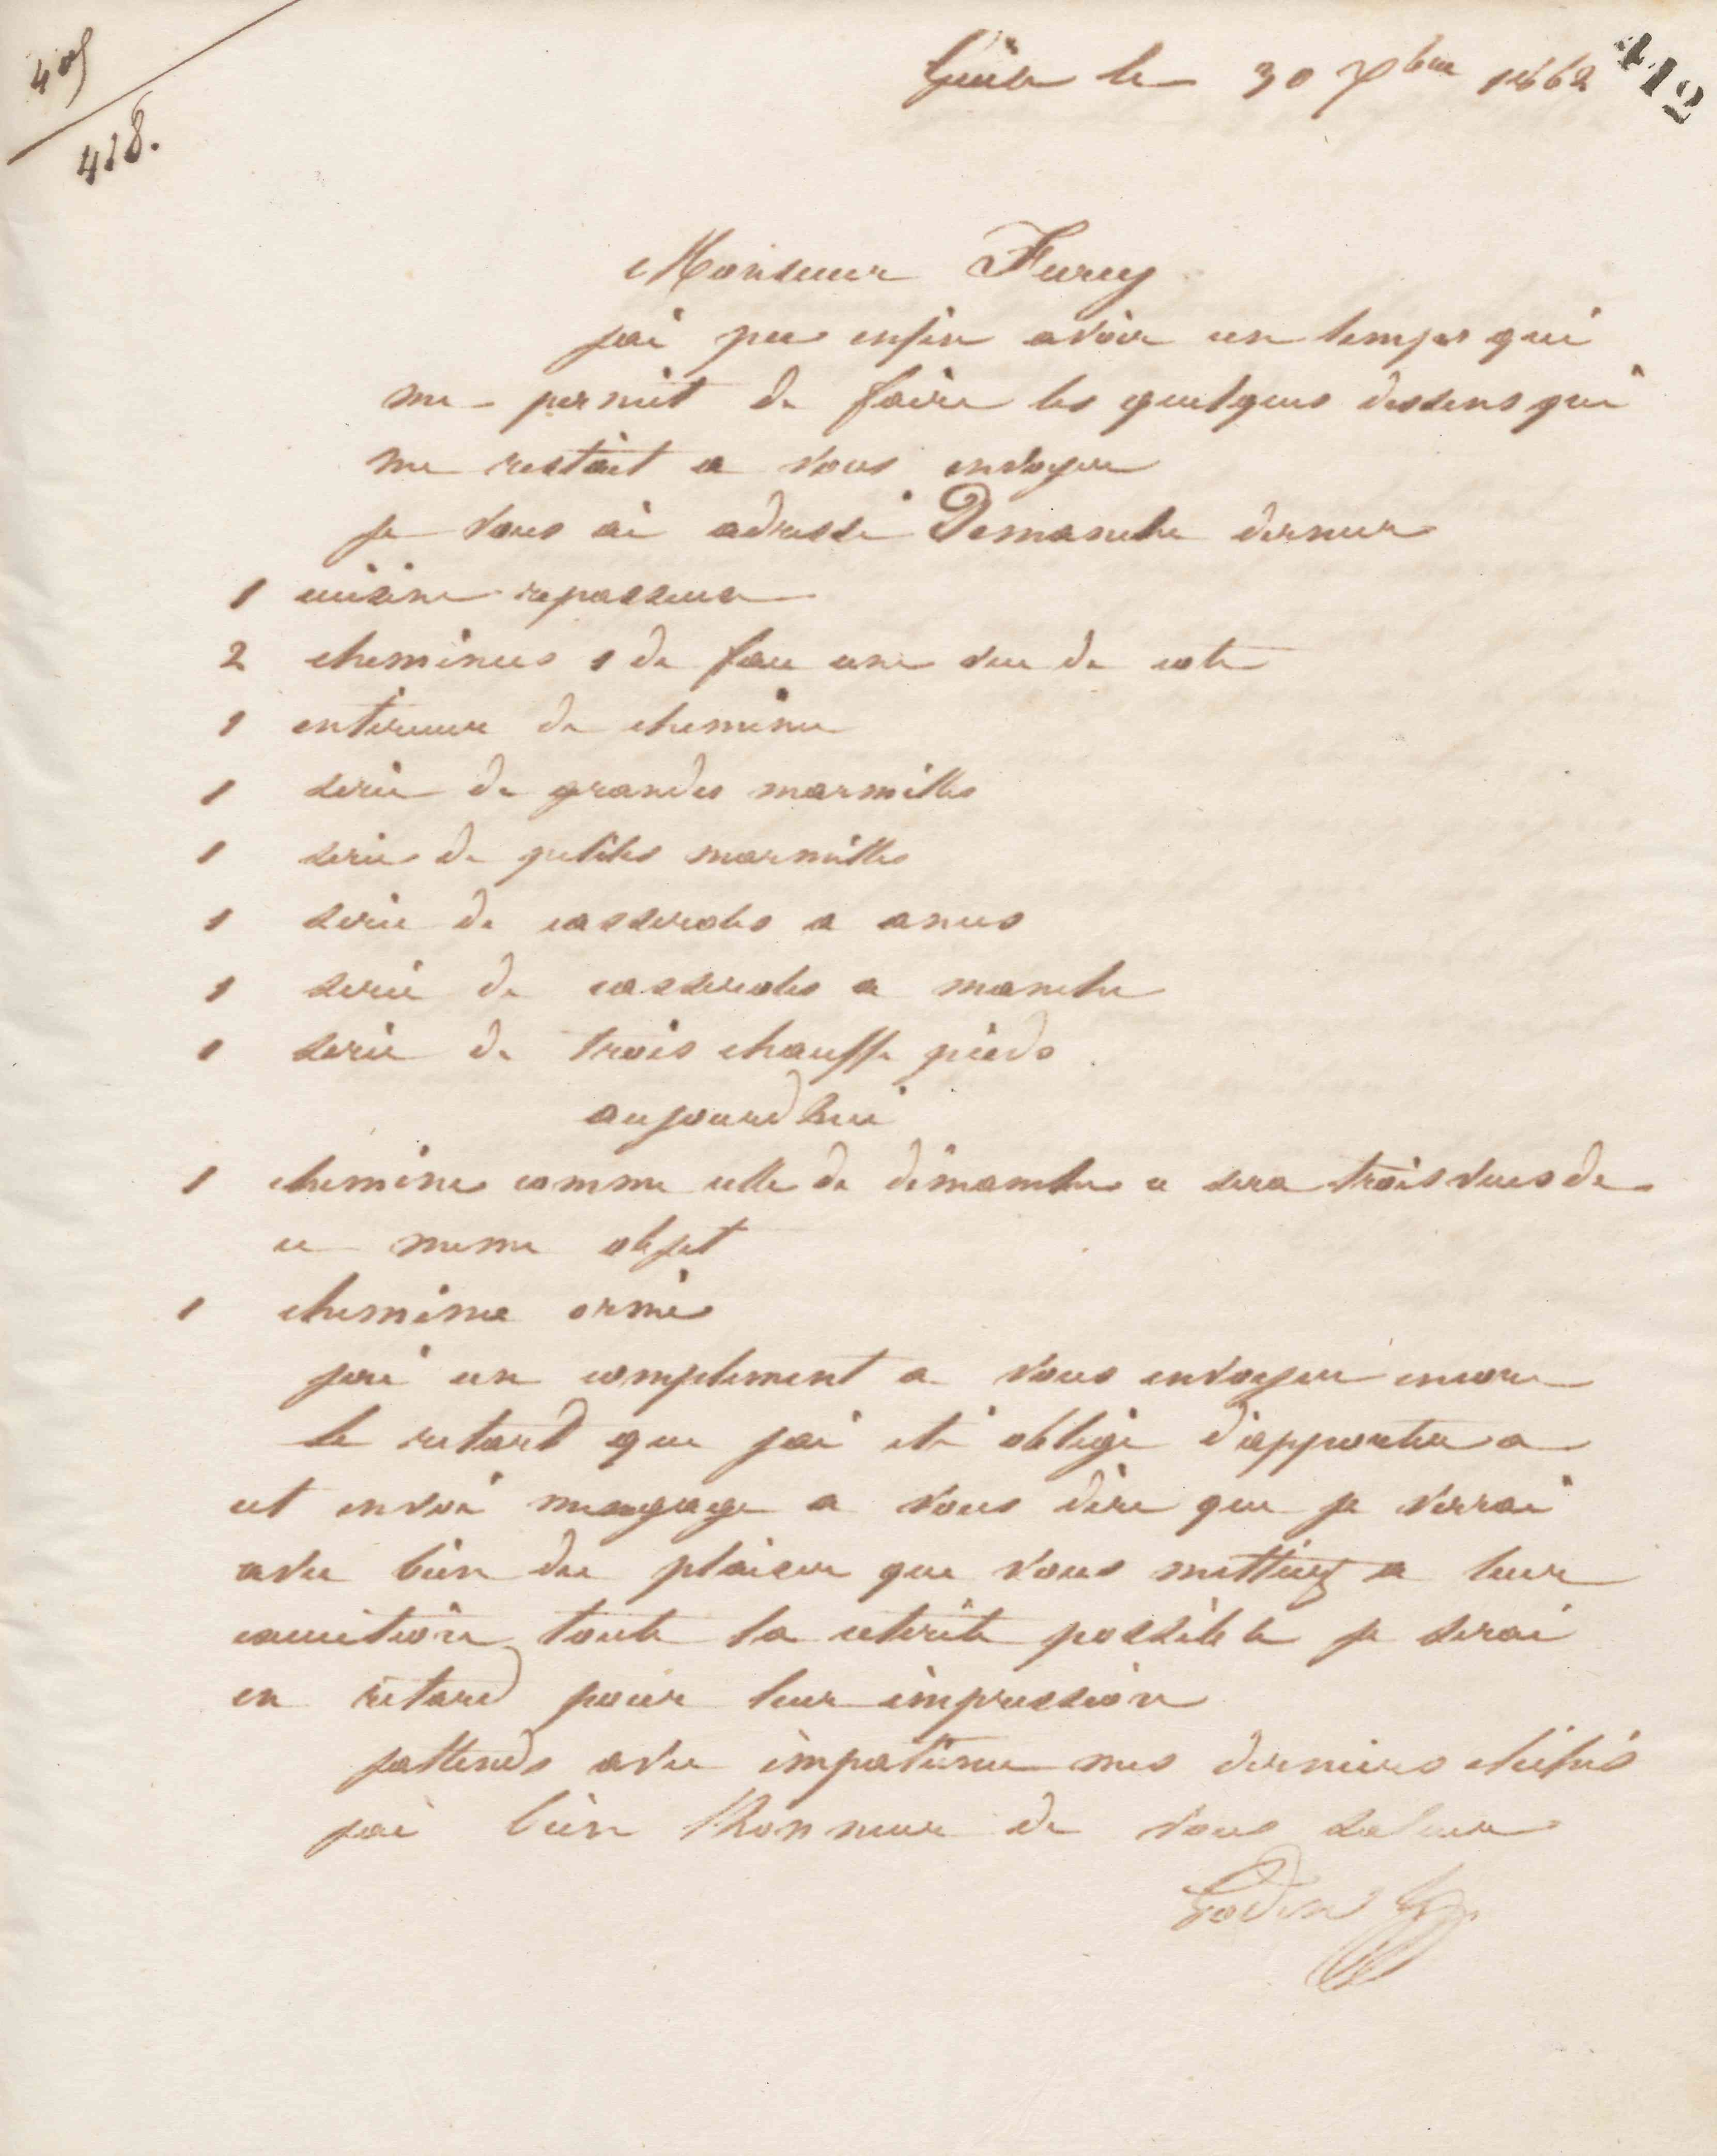 409
418.
412
Guise le 30 7bre 1862
Monsieur Furey
jai pu enfin avoir un temps qui
me permit de faire les quelques dessins qui
me restait a vous envoyer
je vous ai adressé Dimanche dernier
1 cuisine repasseuse
2 cheminees 1 de face une vue de coté
1 interieur de cheminee
1 serie de grandes marmittes
1 serie de petites marmittes
1 serie de casseroles a anses
1 serie de casseroles a manche
1 serie de trois chauffe pieds
aujourdhui
1 cheminee comme celle de dimanche ce sera trois vues de
ce meme objet
1 cheminee ornée
jai un complement a vous envoyer encore
le retard que jai eté obligé d'apporter a
cet envoi mengage a vous dire que je verrai
avec bien du plaisir que vous mettiez a leur
execution toute la celerité possible je serai
en retard pour leur impression
jattends avec impatience mes derniers clichés
jai bien lhonneur de vous saluer
Godin